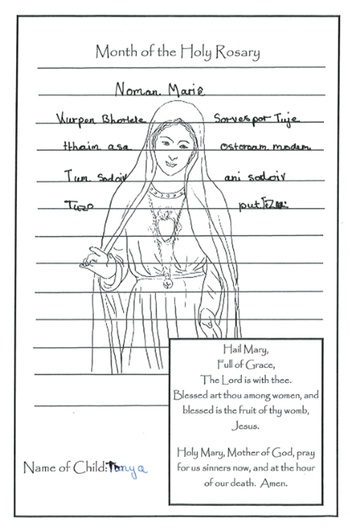 Month of the Holy Rosary
Noman Marie
Kurpen Bhortele Sorvespor Tuje
thaim asa ostoream modem
Tum sodoiv ani sodoiv
Tuzo put
Hail Mary,
Full of Grace,
The Lord is with thee.
Blessed art thou among women, and
blessed is the fruit of thy womb,
Jesus.
Holy Mary, Mother of God, pray
for us sinners now, and at the hour
of our death. Amen.
Name of Child: Tanya